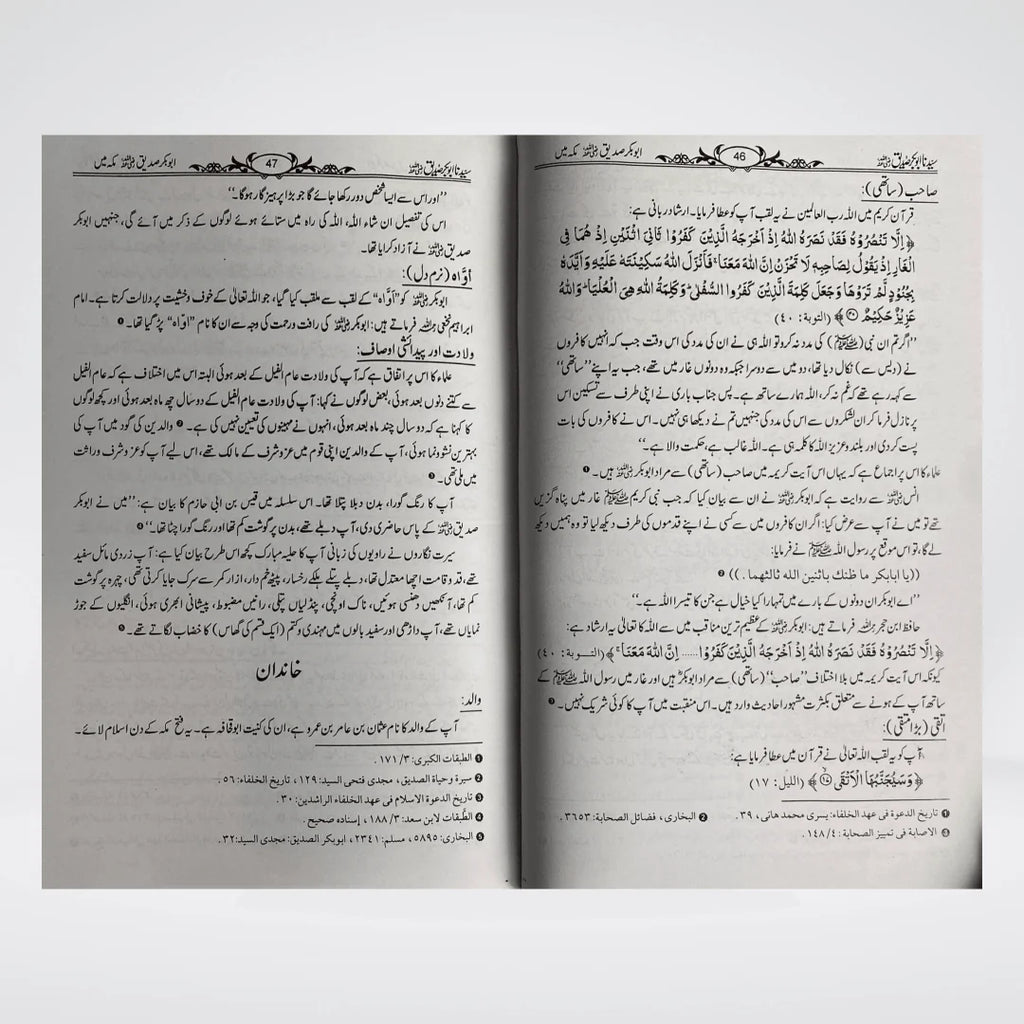 سیدنا ابوبکر صدیق رضی اللہ عنہ 46 ابوبکر صدیق رضی اللہ عنہ مکہ میں
صاحب (ساتھی):
قرآن کریم میں اللہ رب العالمین نے یہ لقب آپ کو عطا فرمایا۔ ارشاد ربانی ہے:
﴿اِلَّا تَنْصُرُوْهُ فَقَدْ نَصَرَهُ اللّٰهُ اِذْ اَخْرَجَهُ الَّذِيْنَ كَفَرُوْا ثَانِيَ اثْنَيْنِ اِذْ هُمَا فِي
الْغَارِ اِذْ يَقُوْلُ لِصَاحِبِهٖ لَا تَحْزَنْ اِنَّ اللّٰهَ مَعَنَا ۚ فَاَنْزَلَ اللّٰهُ سَكِيْنَتَهٗ عَلَيْهِ وَاَيَّدَهٗ
بِجُنُوْدٍ لَّمْ تَرَوْهَا وَجَعَلَ كَلِمَةَ الَّذِيْنَ كَفَرُوا السُّفْلٰى ؕ وَكَلِمَةُ اللّٰهِ هِيَ الْعُلْيَا ؕ وَاللّٰهُ
عَزِيْزٌ حَكِيْمٌ ۝۴۰﴾ (التوبة: ٤٠)
’’اگر تم ان نبی (ﷺ) کی مدد نہ کرو تو اللہ ہی نے ان کی مدد کی اس وقت جب کہ انہیں کافروں
نے (دیس سے) نکال دیا تھا، دو میں سے دوسرا جبکہ وہ دونوں غار میں تھے، جب یہ اپنے ’’ساتھی‘‘
سے کہہ رہے تھے کہ غم نہ کر، اللہ ہمارے ساتھ ہے۔ پس جناب باری نے اپنی طرف سے تسکین اس
پر نازل فرما کر ان لشکروں سے اس کی مدد کی جنہیں تم نے دیکھا ہی نہیں۔ اس نے کافروں کی بات
پست کر دی اور بلند و عزیز اللہ کا کلمہ ہی ہے۔ اللہ غالب ہے، حکمت والا ہے۔‘‘
علماء کا اس پر اجماع ہے کہ یہاں اس آیت کریمہ میں صاحب (ساتھی) سے مراد ابوبکر رضی اللہ عنہ ہیں۔ ❶
انس رضی اللہ عنہ سے روایت ہے کہ ابوبکر رضی اللہ عنہ نے ان سے بیان کیا کہ جب نبی کریم ﷺ غار میں پناہ گزیں
تھے تو میں نے آپ سے عرض کیا: اگر ان کافروں میں سے کسی نے اپنے قدموں کی طرف دیکھ لیا تو وہ ہمیں دیکھ
لے گا، تو اس موقع پر رسول اللہ ﷺ نے فرمایا:
((يا ابابكر ما ظنك باثنين الله ثالثهما.)) ❷
’’اے ابوبکر ان دونوں کے بارے میں تمہارا کیا خیال ہے جن کا تیسرا اللہ ہے۔‘‘
حافظ ابن حجر رحمہ اللہ فرماتے ہیں: ابوبکر رضی اللہ عنہ کے عظیم ترین مناقب میں سے اللہ تعالیٰ کا یہ ارشاد ہے:
﴿اِلَّا تَنْصُرُوْهُ فَقَدْ نَصَرَهُ اللّٰهُ اِذْ اَخْرَجَهُ الَّذِيْنَ كَفَرُوْا ...... اِنَّ اللّٰهَ مَعَنَا ۚ﴾ (التوبة: ٤٠)
کیونکہ اس آیت کریمہ میں بلا اختلاف ’’صاحب‘‘ (ساتھی) سے مراد ابوبکرؓ ہیں اور غار میں رسول اللہ ﷺ کے
ساتھ آپ کے ہونے سے متعلق بکثرت مشہور احادیث وارد ہیں۔ اس منقبت میں آپ کا کوئی شریک نہیں۔ ❸
اتقی (بڑا متقی):
آپ کو یہ لقب اللہ تعالیٰ نے قرآن میں عطا فرمایا ہے:
﴿وَسَيُجَنَّبُهَا الْاَتْقَى ۝۱۷﴾ (الليل: ١٧)
❶ تاریخ الدعوة فی عهد الخلفاء: یسری محمد هانی، ٣٩. ❷ البخاری، فضائل الصحابة: ٣٦٥٣.
❸ الاصابة فی تمییز الصحابة: ١٤٨/٤.
سیدنا ابوبکر صدیق رضی اللہ عنہ 47 ابوبکر صدیق رضی اللہ عنہ مکہ میں
’’اور اس سے ایسا شخص دور رکھا جائے گا جو بڑا پرہیز گار ہوگا۔‘‘
اس کی تفصیل ان شاء اللہ، اللہ کی راہ میں ستائے ہوئے لوگوں کے ذکر میں آئے گی، جنہیں ابوبکر
صدیق رضی اللہ عنہ نے آزاد کرایا تھا۔
أوَّاه (نرم دل):
ابوبکر رضی اللہ عنہ کو ’’اَوَّاہ‘‘ کے لقب سے ملقب کیا گیا، جو اللہ تعالیٰ کے خوف و خشیت پر دلالت کرتا ہے۔ امام
ابراہیم نخعی رحمہ اللہ فرماتے ہیں: ابوبکر رضی اللہ عنہ کی رافت و رحمت کی وجہ سے ان کا نام ’’اوّاہ‘‘ پڑ گیا تھا۔ ❶
ولادت اور پیدائشی اوصاف:
علماء کا اس پر اتفاق ہے کہ آپ کی ولادت عام الفیل کے بعد ہوئی البتہ اس میں اختلاف ہے کہ عام الفیل
سے کتنے دنوں بعد ہوئی، بعض لوگوں نے کہا: آپ کی ولادت عام الفیل کے دو سال چھ ماہ بعد ہوئی اور کچھ لوگوں
کا کہنا ہے کہ دو سال چند ماہ بعد ہوئی، انہوں نے مہینوں کی تعیین نہیں کی ہے۔ ❷ والدین کی گود میں آپ کی
بہترین نشو و نما ہوئی، آپ کے والدین اپنی قوم میں عز و شرف کے مالک تھے، اس لیے آپ کو عز و شرف وراثت
میں ملی تھی۔ ❸
آپ کا رنگ گورا، بدن دبلا پتلا تھا۔ اس سلسلہ میں قیس بن ابی حازم کا بیان ہے: ’’میں نے ابوبکر
صدیق رضی اللہ عنہ کے پاس حاضری دی، آپ دبلے تھے، بدن پر گوشت کم تھا اور رنگ گورا چٹا تھا۔‘‘ ❹
سیرت نگاروں نے راویوں کی زبانی آپ کا حلیہ مبارک کچھ اس طرح بیان کیا ہے: آپ زردی مائل سفید
تھے، قد و قامت اچھا معتدل تھا، دبلے پتلے ہلکے رخسار، پیٹھ خم دار، ازار کمر سے سرک جایا کرتی تھی، چہرہ پر گوشت
کم تھا، آنکھیں دھنسی ہوئیں، ناک اونچی، پنڈلیاں پتلی، رانیں مضبوط، پیشانی ابھری ہوئی، انگلیوں کے جوڑ
نمایاں تھے، آپ داڑھی اور سفید بالوں میں مہندی و کتم (ایک قسم کی گھاس) کا خضاب لگاتے تھے۔ ❺
خاندان
والد:
آپ کے والد کا نام عثمان بن عامر بن عمرو ہے، ان کی کنیت ابوقحافہ ہے۔ یہ فتح مکہ کے دن اسلام لائے۔
❶ الطبقات الکبری: ١٧١/٣.
❷ سیرة وحیاة الصدیق، مجدی فتحی السید: ١٢٩، تاریخ الخلفاء: ٥٦.
❸ تاریخ الدعوة الاسلام فی عهد الخلفاء الراشدین: ٣٠.
❹ الطَّبقات لابن سعد: ١٨٨/٣، إسناده صحیح.
❺ البخاری: ٥٨٩٥، مسلم: ٢٣٤١، ابوبکر الصدیق: مجدی السید: ٣٢.